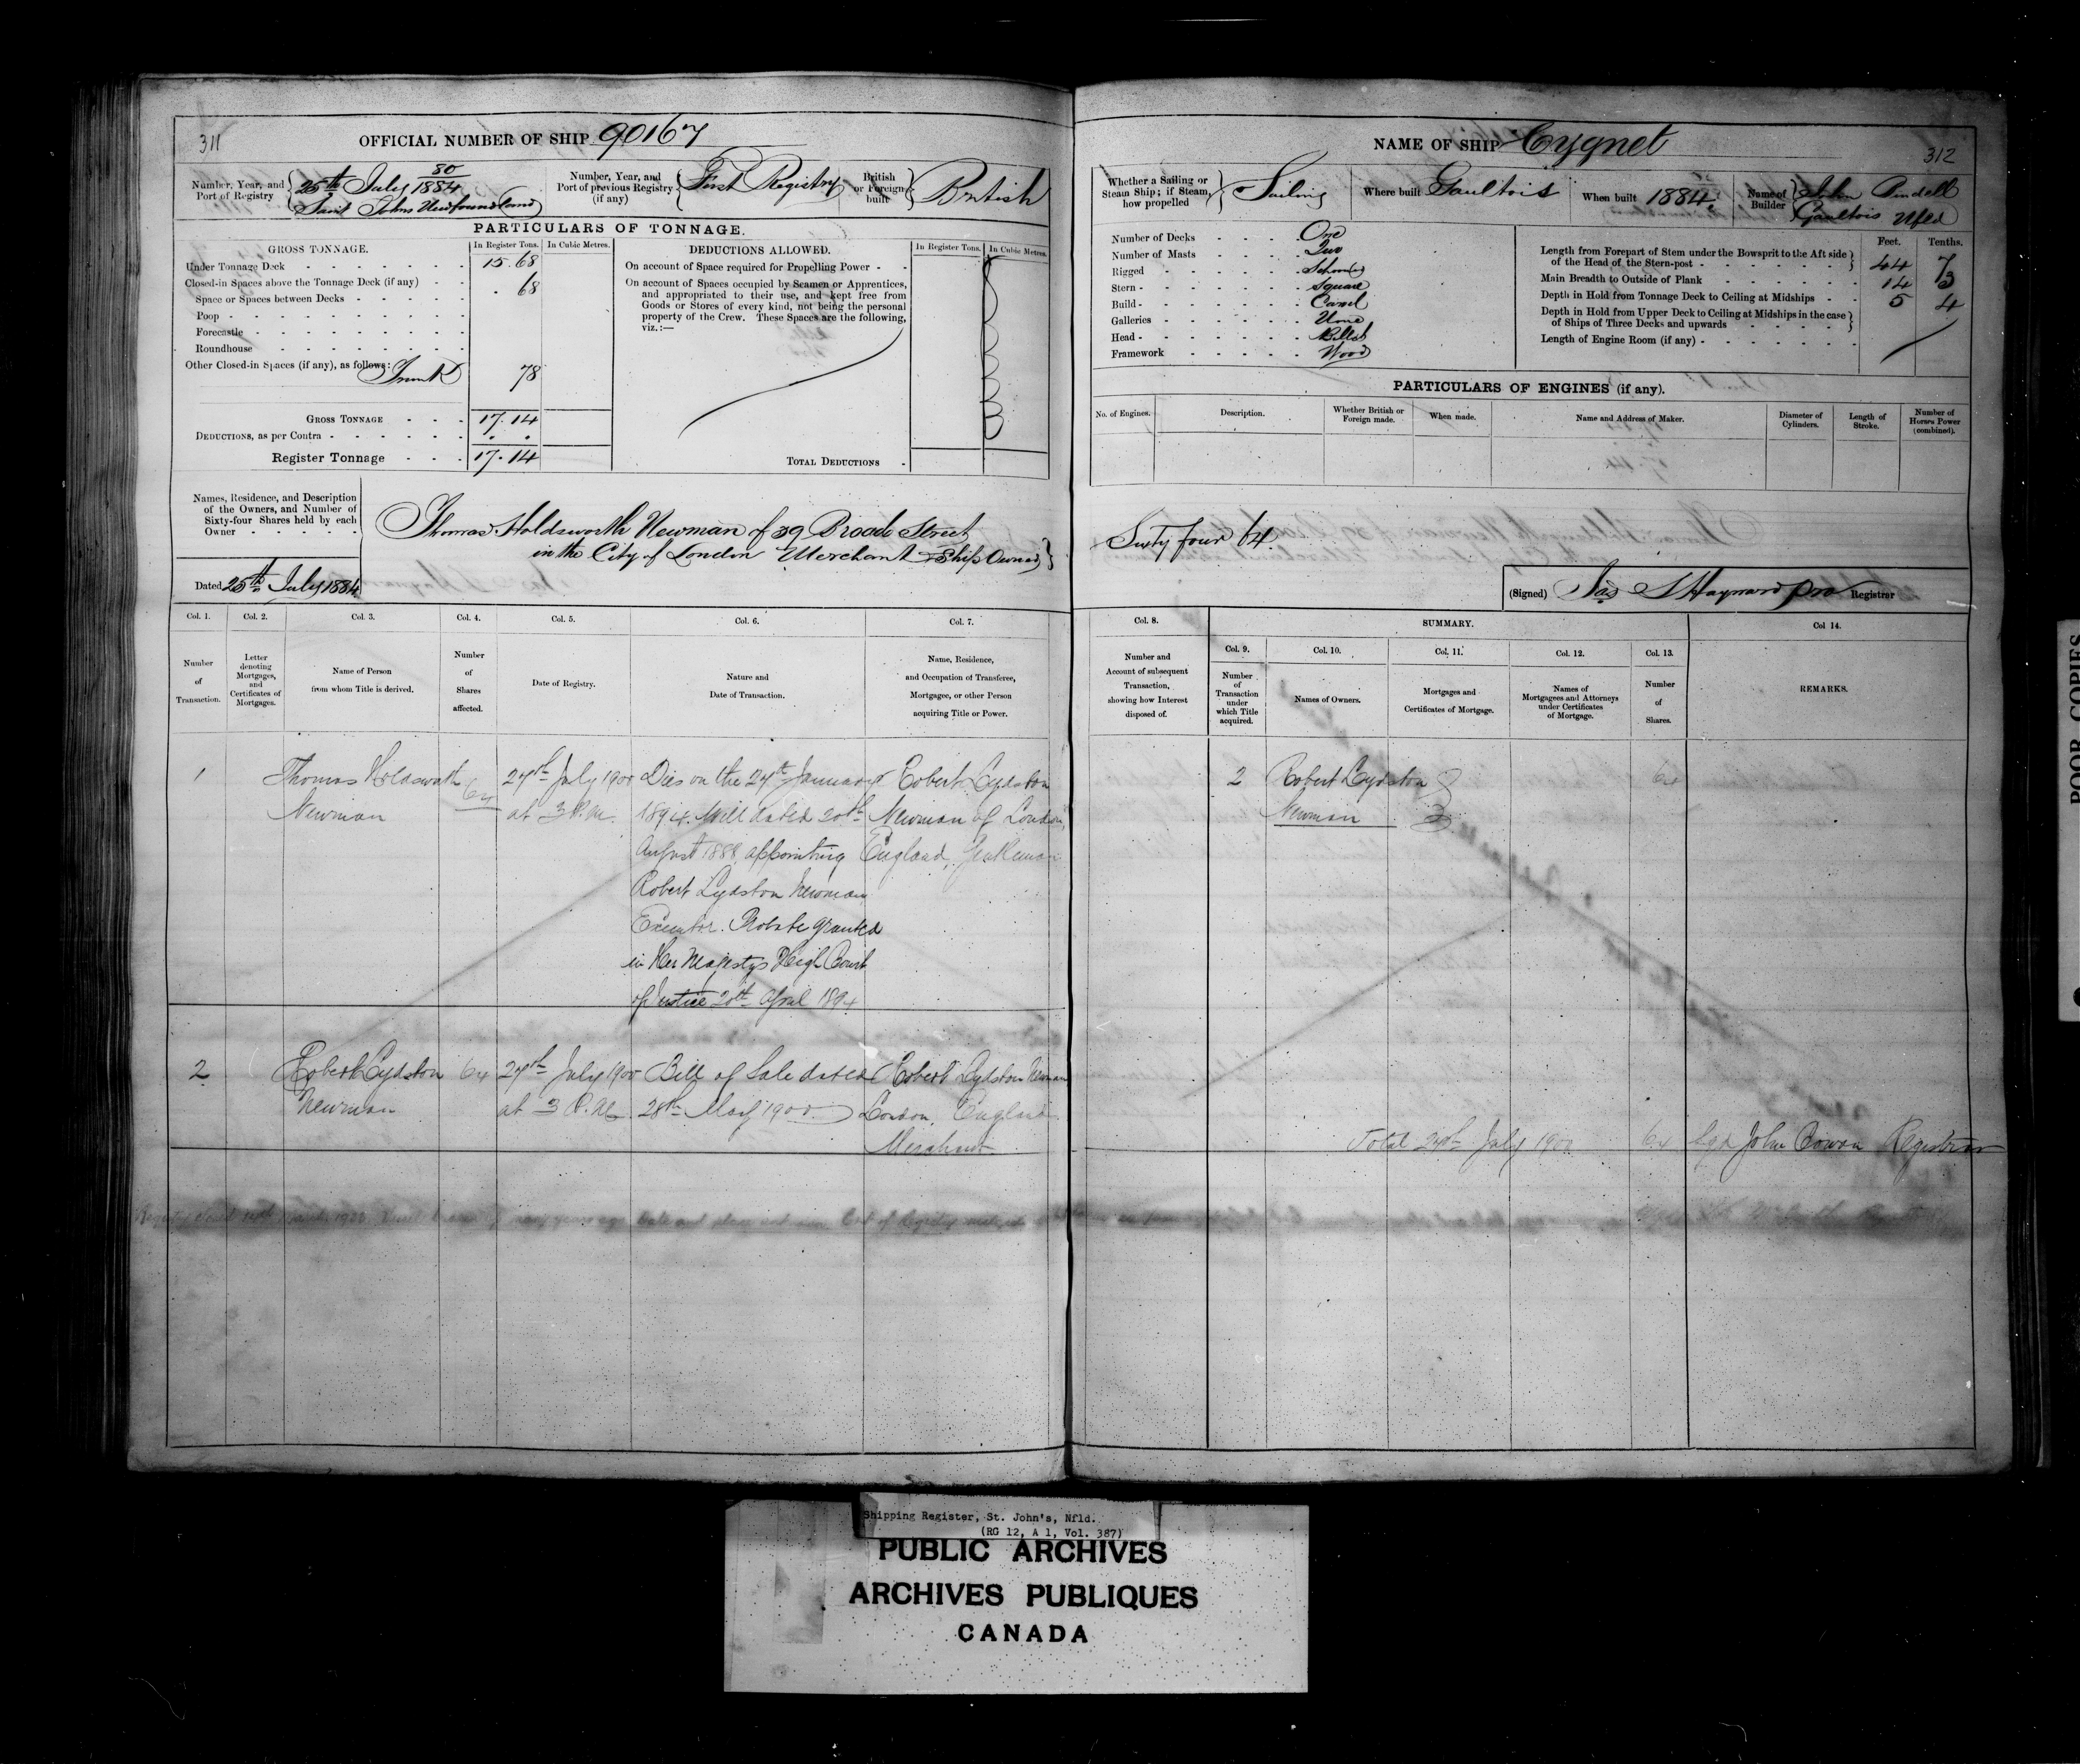 311
OFFICIAL NUMBER OF SHIP 90167
Number, Year, and Port of Registry
80
25th July 1884
Saint Johns Newfoundland
Number, Year, and Port of previous Registry (if any)
First Registry
British or Foreign built
British
PARTICULARS OF TONNAGE.
GROSS TONNAGE.
In Register Tons.
In Cubic Metres.
Under Tonnage Deck 15.68
Closed-in Spaces above the Tonnage Deck (if any) . 68
Space or Spaces between Decks
Poop
Forecastle
Roundhouse
Other Closed-in Spaces (if any), as follows:
Trunk 78
GROSS TONNAGE 17.14
DEDUCTIONS, as per Contra . .
Register Tonnage 17.14
DEDUCTIONS ALLOWED.
In Register Tons.
In Cubic Metres.
On account of Space required for Propelling Power
On account of Spaces occupied by Seamen or Apprentices,
and appropriated to their use, and kept free from
Goods or Stores of every kind, not being the personal
property of the Crew. These Spaces are the following,
viz.:—
TOTAL DEDUCTIONS
Names, Residence, and Description
of the Owners, and Number of
Sixty-four Shares held by each
Owner
Thomas Holdsworth Newman of 39 Broad Street
in the City of London Merchant & Ship Owner
Dated 25th July 1884
Col. 1.
Number
of
Transaction.
Col. 2.
Letter
denoting
Mortgages,
and
Certificates of
Mortgages.
Col. 3.
Name of Person
from whom Title is derived.
Col. 4.
Number
of
Shares
affected.
Col. 5.
Date of Registry.
Col. 6.
Nature and
Date of Transaction.
Col. 7.
Name, Residence,
and Occupation of Transferee,
Mortgagee, or other Person
acquiring Title or Power.
1
Thomas Holdsworth
Newman
64
27th July 1900
at 3 P.M.
Died on the 27th January
1894. Will dated 20th
August 1888 appointing
Robert Lydston Newman
Executor. Probate granted
in Her Majestys High Court
of Justice 20th April 1894
Robert Lydston
Newman of London,
England, Gentleman
2
Robert Lydston
Newman
64
27th July 1900
at 3 P.M.
Bill of Sale dated
28th May 1900
Robert Lydston Newman
London, England
Merchant
NAME OF SHIP Cygnet
312
Whether a Sailing or
Steam Ship; if Steam,
how propelled
Sailing
Where built Gaultois
When built 1884
Name of Builder
John
Gaultois Nfld
Number of Decks One
Number of Masts Two
Rigged Schooner
Stern Square
Build Carvel
Galleries None
Head Billet
Framework Wood
Feet.
Tenths.
Length from Forepart of Stem under the Bowsprit to the Aft side
of the Head of the Stern-post 44 7
Main Breadth to Outside of Plank 14 3
Depth in Hold from Tonnage Deck to Ceiling at Midships 5 4
Depth in Hold from Upper Deck to Ceiling at Midships in the case
of Ships of Three Decks and upwards
Length of Engine Room (if any)
PARTICULARS OF ENGINES (if any).
No. of Engines.
Description.
Whether British or
Foreign made.
When made.
Name and Address of Maker.
Diameter of
Cylinders.
Length of
Stroke.
Number of
Horses Power
(combined).
Sixty four 64
(Signed) Jas S Hayward pro Registrar
Col. 8.
Number and
Account of subsequent
Transaction,
showing how Interest
disposed of.
SUMMARY.
Col. 9.
Number
of
Transaction
under
which Title
acquired.
Col. 10.
Names of Owners.
Col. 11.
Mortgages and
Certificates of Mortgage.
Col. 12.
Names of
Mortgagees and Attorneys
under Certificates
of Mortgage.
Col. 13.
Number
of
Shares.
Col 14.
REMARKS.
2
Robert Lydston
Newman
64
Total 27th July 1900 64 Sgd John Registrar
POOR COPIES
Shipping Register, St. John's, Nfld.
(RG 12, A 1, Vol. 387)
PUBLIC ARCHIVES
ARCHIVES PUBLIQUES
CANADA